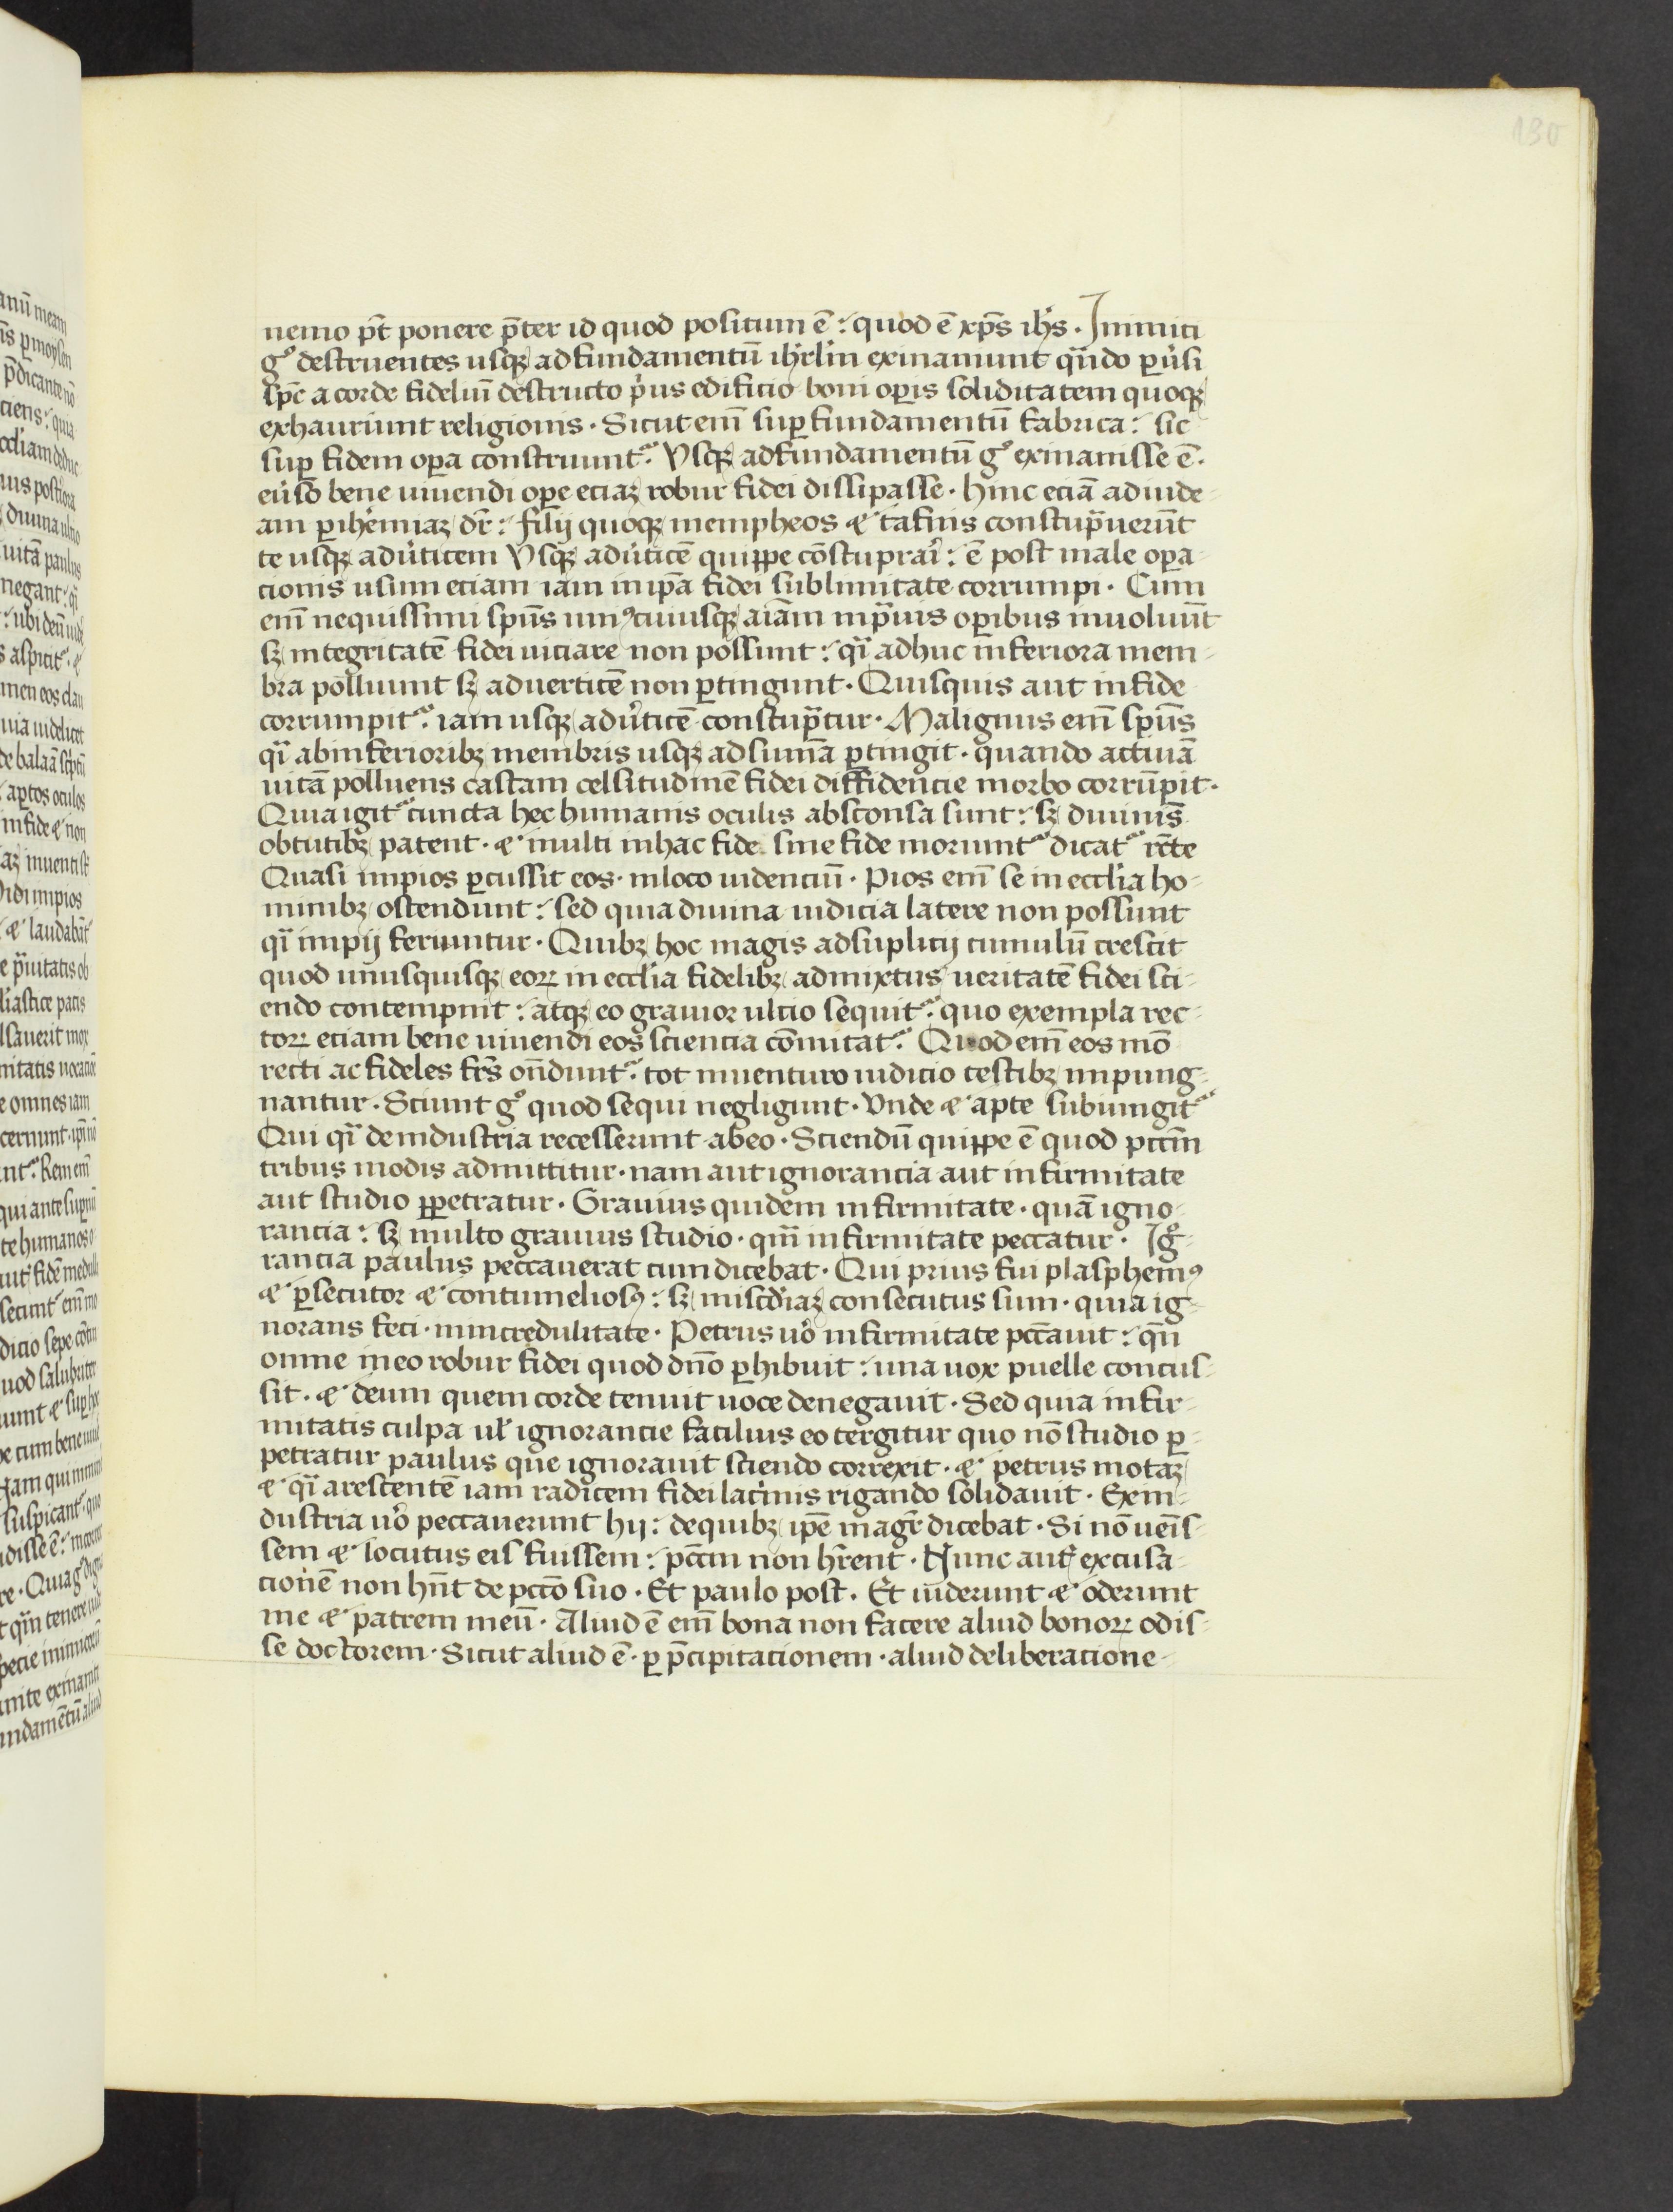 130
nemo pt̄ ponere p̄ter id quod positum ē : quod ē xp̄s ih̄s . Inimici
gͦ destruentes usqꝫ ad fundamentū ihrl̄m exinaniunt qn̄do ꝑuͥsi
sp̄c a corde fideliū destructo pͥus edificio boni oꝑis soliditatem quoqꝫ
exhauriunt religionis . Sicut em̄ suꝑ fundamentū fabrica : sic
suꝑ fidem oꝑa construunt᷑ . Vsqꝫ ad fundamentū gͦ exinanisse ē .
bene uiuendi oꝑe eciaꝫ robur fidei dissipasse . hinc eciā ad iude-
am ꝑ ihe᷑miaꝫ dr̄ : filij quoqꝫ mempheos & tafnis constupᵃuerūt
te usqꝫ ad ue᷑ticem Vsqꝫ ad ue᷑ticē quippe cōstuprari᷑ : ē post male oꝑa-
cionis usum eciam iam in ip̄a fidei sublimitate corrumpi . Cum
em̄ nequissimi sp̄us uniꝰcuiusqꝫ aīam in pᵃuis oꝑibus inuoluūt
sꝫ integritatē fidei uiciare non possunt : qͣi adhuc inferiora mem-
bra polluunt sꝫ ad uerticē non ꝑtingunt . Quisquis aut in fide
corrumpit᷑ . iam usqꝫ ad ue᷑ticē constupᵃtur . Malignus em̄ sp̄us
qͣi ab inferioribꝫ membris usqꝫ ad sum̄a ꝑtingit . quando actiuā
uitā polluens castam celsitudinē fidei diffidencie morbo corrūpit .
Quia igit᷑ cuncta hec humanis oculis absconsa sunt : sꝫ diuinis
obtutibꝫ patent . & multi in hac fide sine fide moriunt᷑ dicat᷑ rc̄te
Quasi impios ꝑcussit eos . in loco uidenciū . Pios em̄ se in eccl̄ia ho-
minibꝫ ostendunt : sed quia diuina iudicia latere non possunt
qͣi impij feriuntur . Quibꝫ hoc magis ad suplicij cumulū crescit
quod unusquisqꝫ eoꝝ in eccl̄ia fidelibꝫ admixtus ueritatē fidei sci-
endo contempnit : atqꝫ eo grauior ultio sequit᷑ . quo exempla rec-
toꝝ eciam bene uiuendi eos sciencia cōmutat᷑ . Quod em̄ eos mō
recti ac fideles frs̄ on̄dunt᷑ . tot in uenturo iudicio testibꝫ impung-
nantur . Sciunt gͦ quod sequi negligunt . Vnde & apte subiungit᷑
Qui qͣi de industria recesserunt ab eo . Sciendū quippe ē quod pcc̄m
tribus modis admittitur . nam aut ignorancia aut infirmitate
aut studio ꝑpetratur . Grauius quidem infirmitate . quā igno-
rancia : sꝫ multo grauius studio . qm̄ infirmitate peccatur . Igͦ-
rancia paulus peccauerat cum dicebat . Qui prius fui plasphemꝰ
& ꝑsecutor & contumeliosꝰ : sꝫ misc̄diaꝫ consecutus sum . quia ig-
norans feci . in incredulitate . Petrus uͦ infirmitate pcc̄auit : qn̄
omne in eo robur fidei quod dn̄o ꝑhibuit : una uox puelle concus-
sit . & deum quem corde tenuit uoce denegauit . Sed quia infir-
mitatis culpa ul̓ ignorancie facilius eo tergitur quo nō studio ꝑ-
petratur paulus que ignorauit sciendo correxit . & petrus motaꝫ
& qͣi arescentē iam radicem fidei lacͥmis rigando solidauit . Ex in-
dustria uͦ peccauerunt hij : de quibꝫ ip̄e magr̄ dicebat . Si nō uenīs-
sem & locutus eis fuissem : pcc̄m non hr̄ent . Nunc aut̄ excusa-
cionē non hn̄t de pcc̄o suo . Et paulo post . Et uiderunt & oderunt
me & patrem meū . Aliud ē em̄ bona non facere aliud bonoꝝ odis-
se doctorem . Sicut aliud ē . ꝑ p̄cipitacionem . aliud deliberacione-